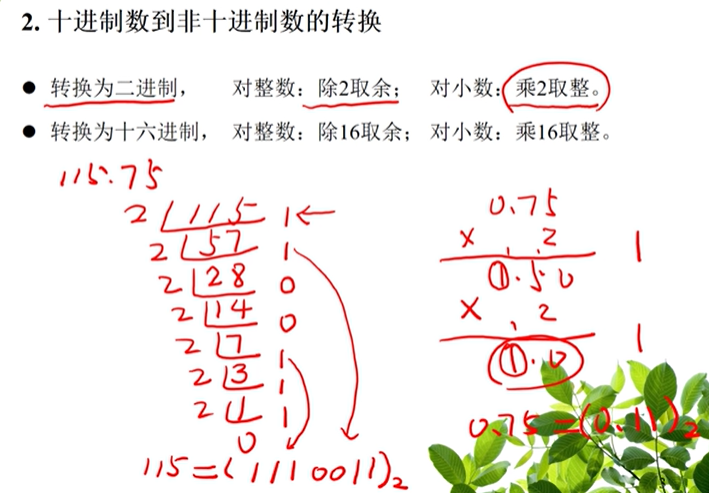 2. 十进制数到非十进制数的转换
● 转换为二进制， 对整数：除2取余； 对小数：乘2取整。
● 转换为十六进制， 对整数：除16取余； 对小数：乘16取整。
115.75
2 115 1
2 57 1
2 28 0
2 14 0
2 7 1
2 3 1
2 1 1
0
115=(1110011)2
0.75
× 2
1.50 1
× 2
1.0 1
0.75=(0.11)2